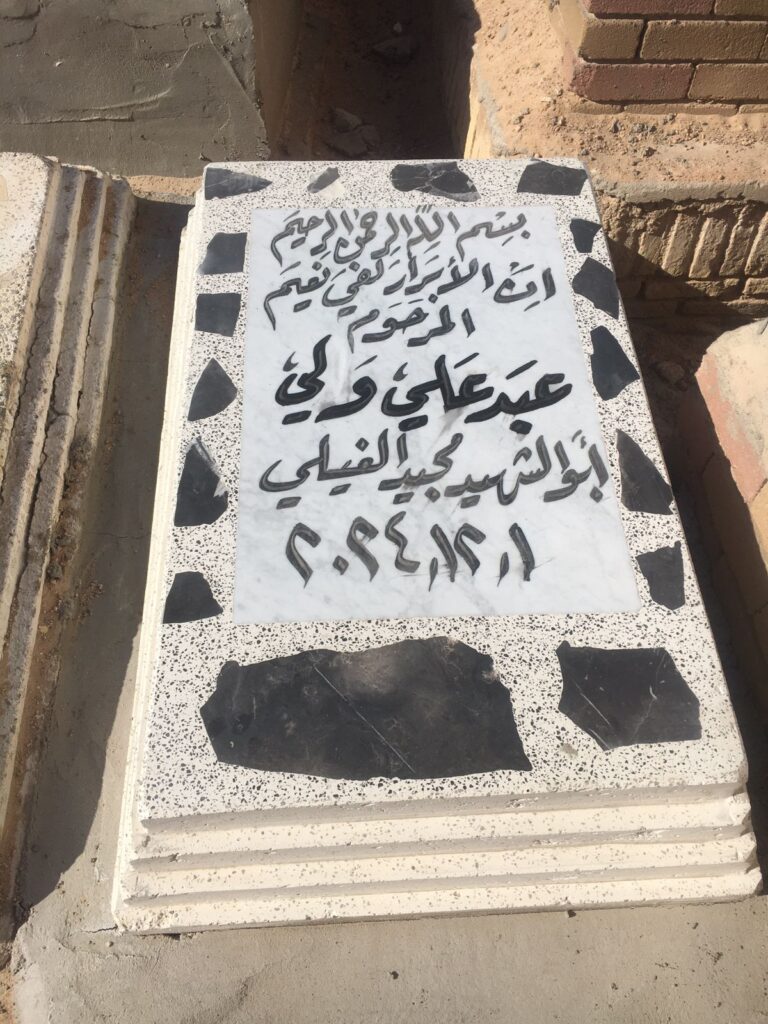 بِسْمِ اللهِ الرحمنِ الرحيمِ
اِنَّ الأبرَارَ لَفي نَعيم
المرحوم
عَبد عَلي وَلي
أبو الشهيد مجيد الفيلي
٢٠٢٤/١٢/١